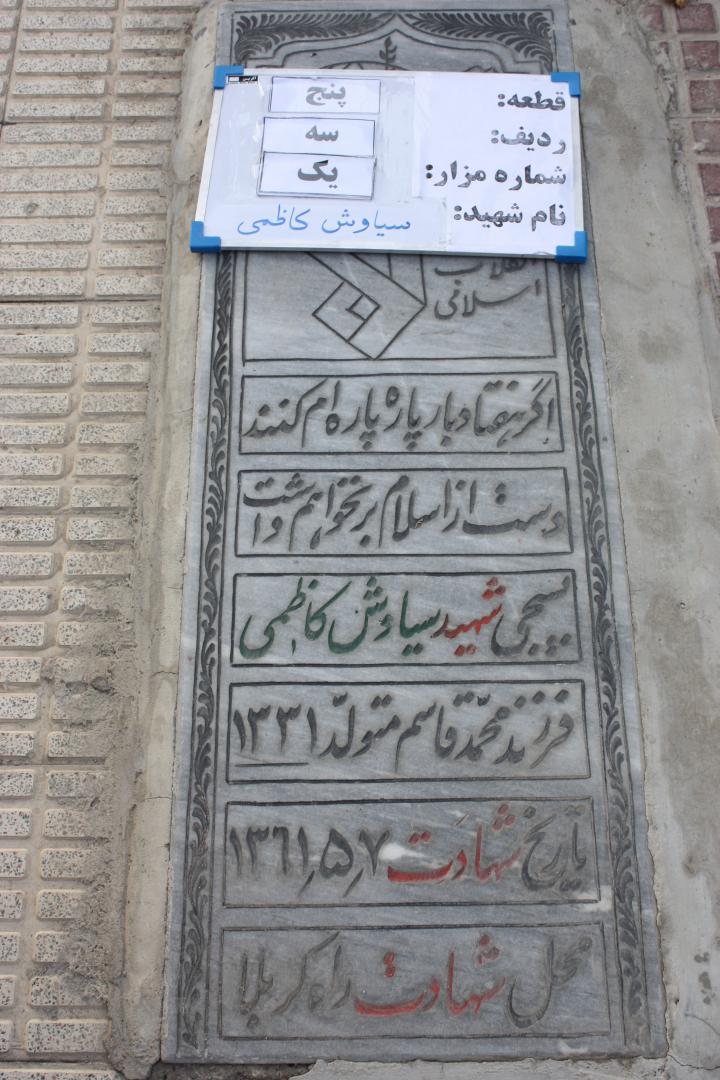 قطعه: پنج
ردیف: سه
شماره مزار: یک
نام شهید: سیاوش کاظمی
اسلامی
اگر هفتاد بار پاره پاره ام کنند
دست از اسلام برنخواهم داشت
بسیجی شهید سیاوش کاظمی
فرزند محمّد قاسم متولّد ۱۳۳۱
تاریخ شهادت ۱۳۶۱٫۵٫۷
محل شهادت راه کربلا